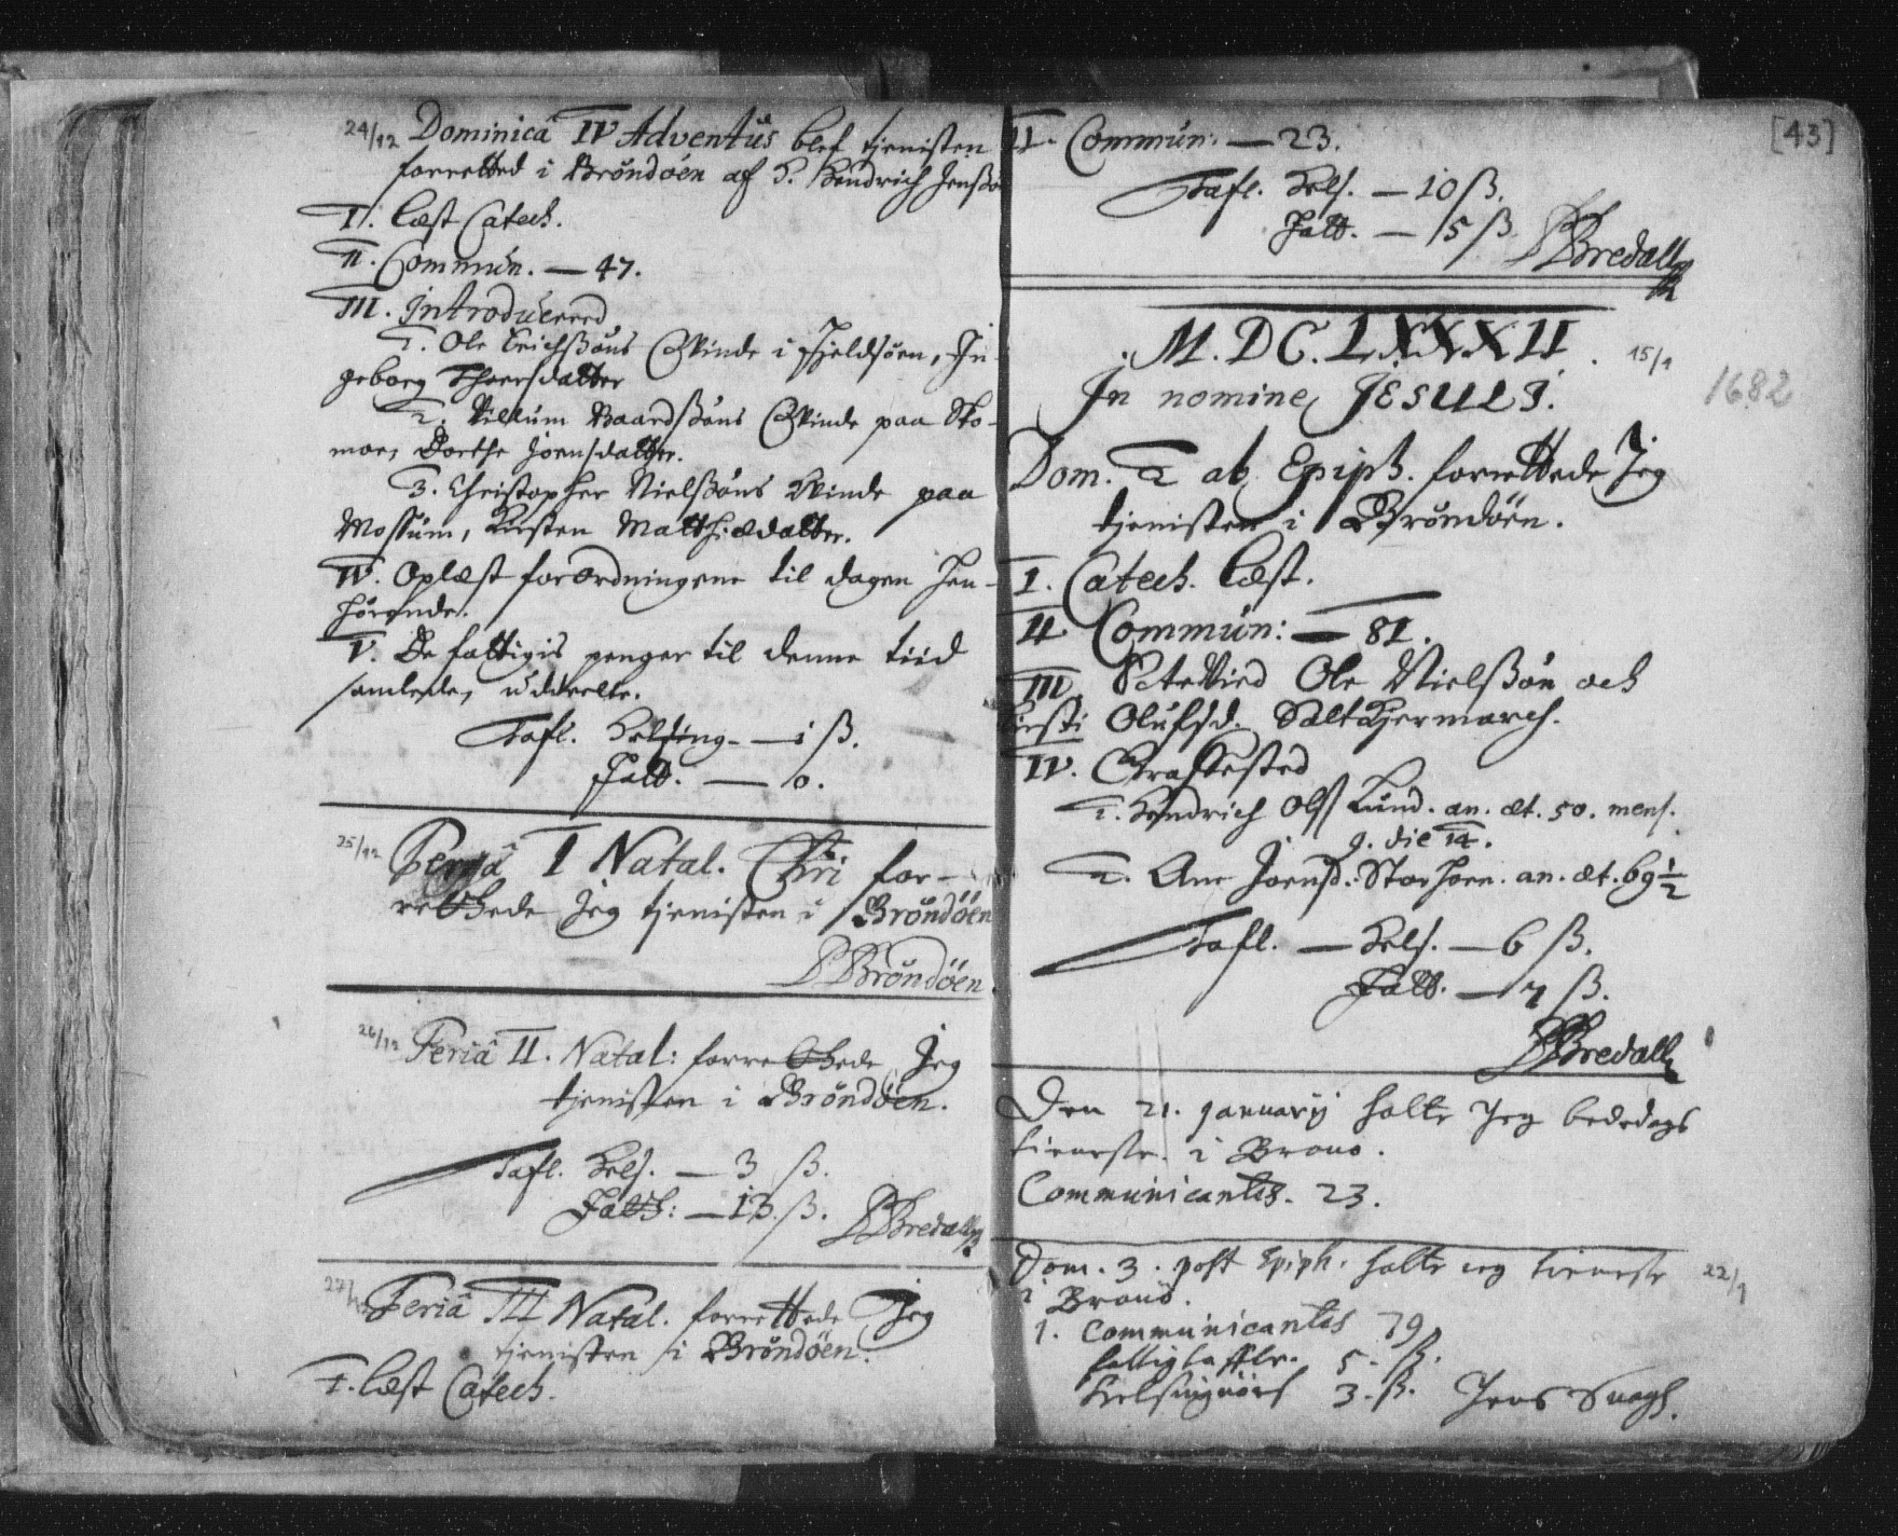 24/12 Dominicâ IV Adventûs blef tjenisten
forretted i Bröndöen af H. Hendrich Jenßøn
I. læst Catech.
II. Commun. — 47.
III. Introducered
1. Ole Erichßöns Qvinde i Hjeldsöen, In
geborg Thoersdatter
2. Villum Baardßöns Qvinde paa Sto-
mor, Dorthe Joensdatter.
3. Christopher Nielßöns Qvinde paa
Mossum, Kirsten Matthiædatter.
IV. Oplæst forordningene til dagen hen-
hörende.
V. De fattigis penger til denne tiid
samlede, uddeelte.
Tafl. Helsing. — 1 ß.
Fatt. — 0.
25/12 Feriâ I Natal. Chri for-
rettede Jeg tjenisten i Bröndöen
PBröndöen
26/12 Feriâ II. Natal: forrettede Jeg
tjenisten i Bröndöen.
Tafl. Hels. — 3 ß.
Fatt: — 13 ß. PBredall
27/12 Feriâ III Natal. forrettede Jeg
tjenisten i Bröndöen.
I. læst Catech.
[43]
II. Commun: — 23.
Tafl. Hels. — 10 ß.
Fatt. — 15 ß PBredall
M.DC.LXXXII. 15/1
1682
In nomine JESULI.
Dom. 2 ab Epiph. forrettede Jeg
tjenisten i Bröndöen.
I. Catech. læst.
II Commun: — 81.
III. Viede Ole Nielßön och
Kirsti Olufsd. Saltkjermarch.
IV. Graffested
1. Hendrich Olß Lund. an. æt. 50. mens.
9. die 14.
2. Ane Joensd. Storhorn. an. æt. 69 1/2
Tafl. — Hels. — 6 ß.
Fatt. — 7 ß.
PBredall
Den 21. januarij holte Jeg bededags
tieneste i Brönö.
Communicantes. 23.
Dom. 3. post Epiph. holte jeg tieneste 22/1
i Brönö.
1. Communicantes 79
fattig taffle. 5. ß.
Helsingnörs 3. ß. Jens